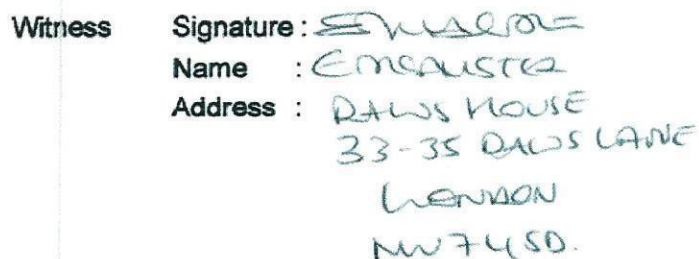 Witness Signature :
Name : E MCALISTER
Address : DAWS HOUSE
33-35 DAWS LANE
LONDON
NW7 4SD.